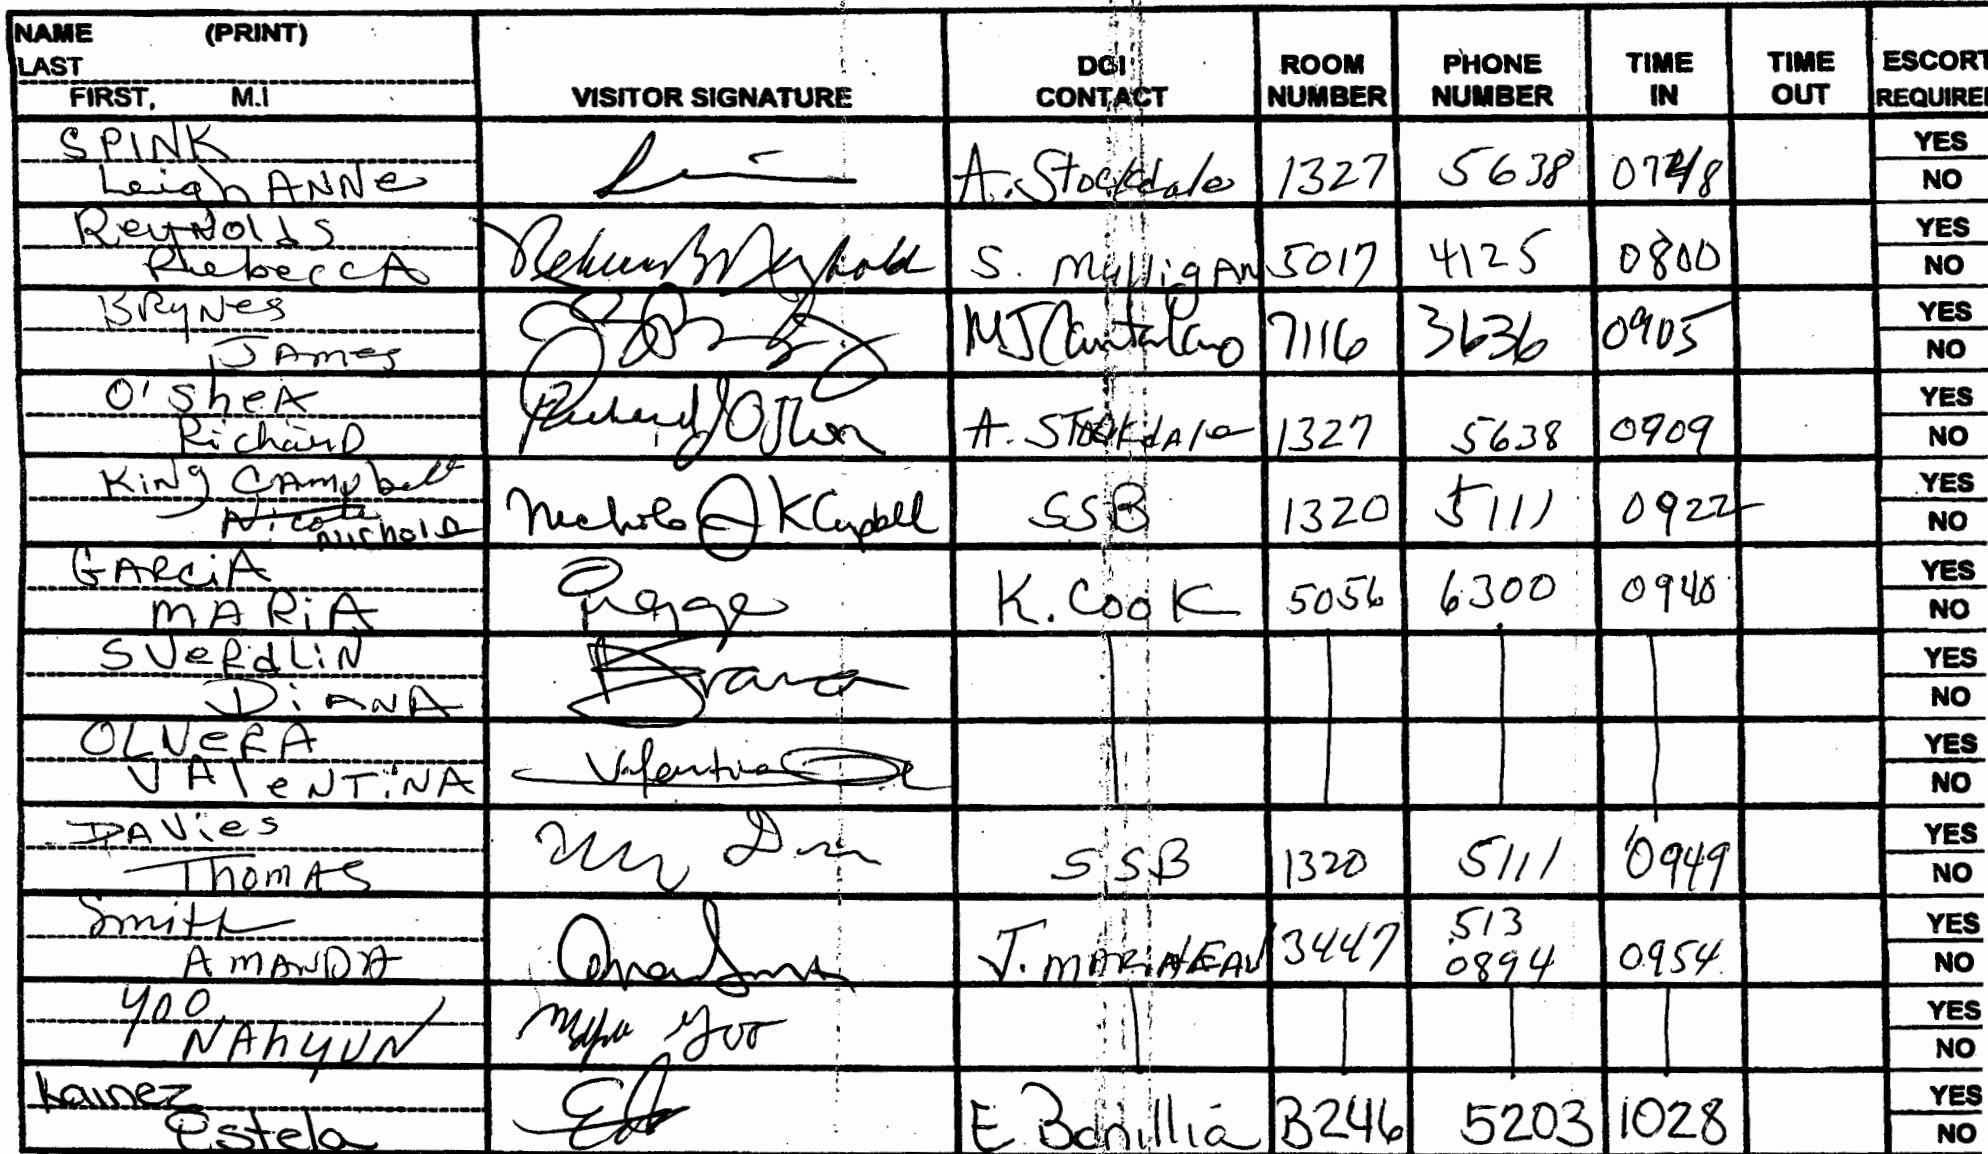 NAME (PRINT)
LAST
FIRST, M.I
VISITOR SIGNATURE
DOI CONTACT
ROOM NUMBER
PHONE NUMBER
TIME IN
TIME OUT
ESCORT REQUIRED
SPINK
Leigh ANNe
A. Stockdale 1327 5638 0748
YES
NO
Reynolds
Rebecca
S. Mulligan 5017 4125 0800
YES
NO
BRyNes
JAmes
MJ Cantalano 7116 3636 0905
YES
NO
O'SheA
RichaRD
A. STOCKDALe 1327 5638 0909
YES
NO
King CAmpbell
Nichola
Nichola J K Campbell SSB 1320 5111 0922
YES
NO
GARciA
MARiA
K. COOK 5056 6300 0940
YES
NO
SVeRdLiN
DiANA
Diana
YES
NO
OLVeRA
VAleNTiNA
Valentina
YES
NO
DAVies
ThomAS
SSB 1320 5111 0949
YES
NO
Smith
AMANDA
J. MARiNEAU 3447 513 0894 0954
YES
NO
Yoo
NAhyUN
Yoo
YES
NO
Lainez
Estela
E Bonillia B246 5203 1028
YES
NO